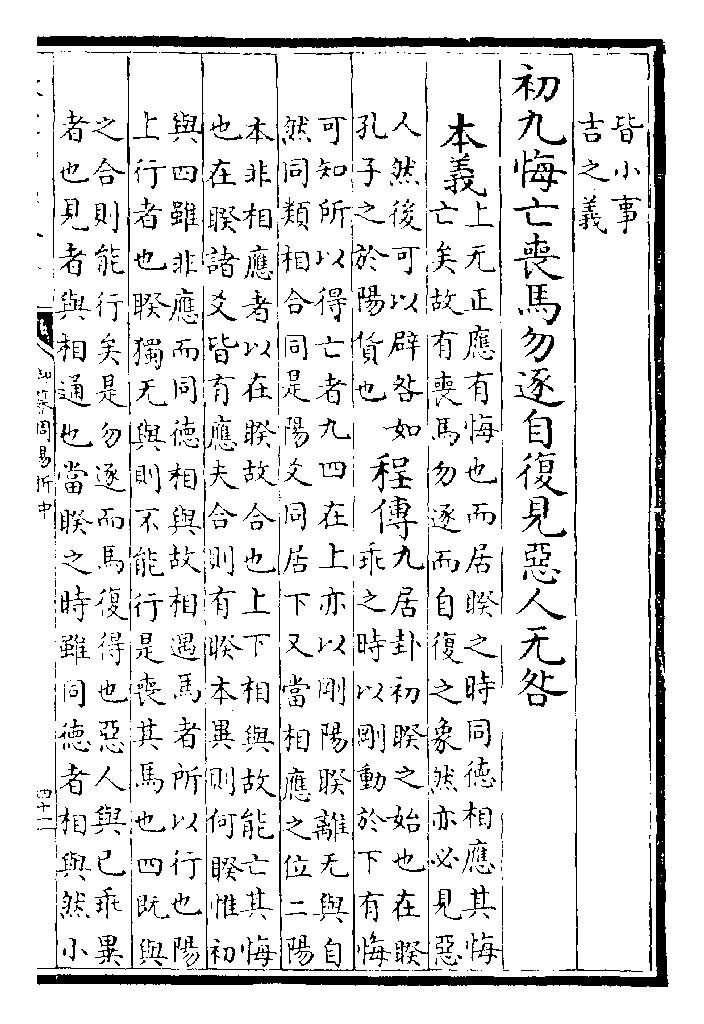 皆小事
吉之義
初九悔亡喪馬勿逐自復見惡人无咎
本義
上无正應有悔也而居睽之時同德相應其悔
亡矣故有喪馬勿逐而自復之象然亦必見惡
人然後可以辟咎如
孔子之於陽貨也
程傳
九居卦初睽之始也在睽
乖之時以剛動於下有悔
可知所以得亡者九四在上亦以剛陽睽離无與自
然同類相合同是陽爻同居下又當相應之位二陽
本非相應者以在睽故合也上下相與故能亡其悔
也在睽諸爻皆有應夫合則有睽本異則何睽惟初
與四雖非應而同德相與故相遇馬者所以行也陽
上行者也睽獨无與則不能行是喪其馬也四既與
之合則能行矣是勿逐而馬復得也惡人與已乖異
者也見者與相通也當睽之時雖同德者相與然小
御纂周易折中
四十二